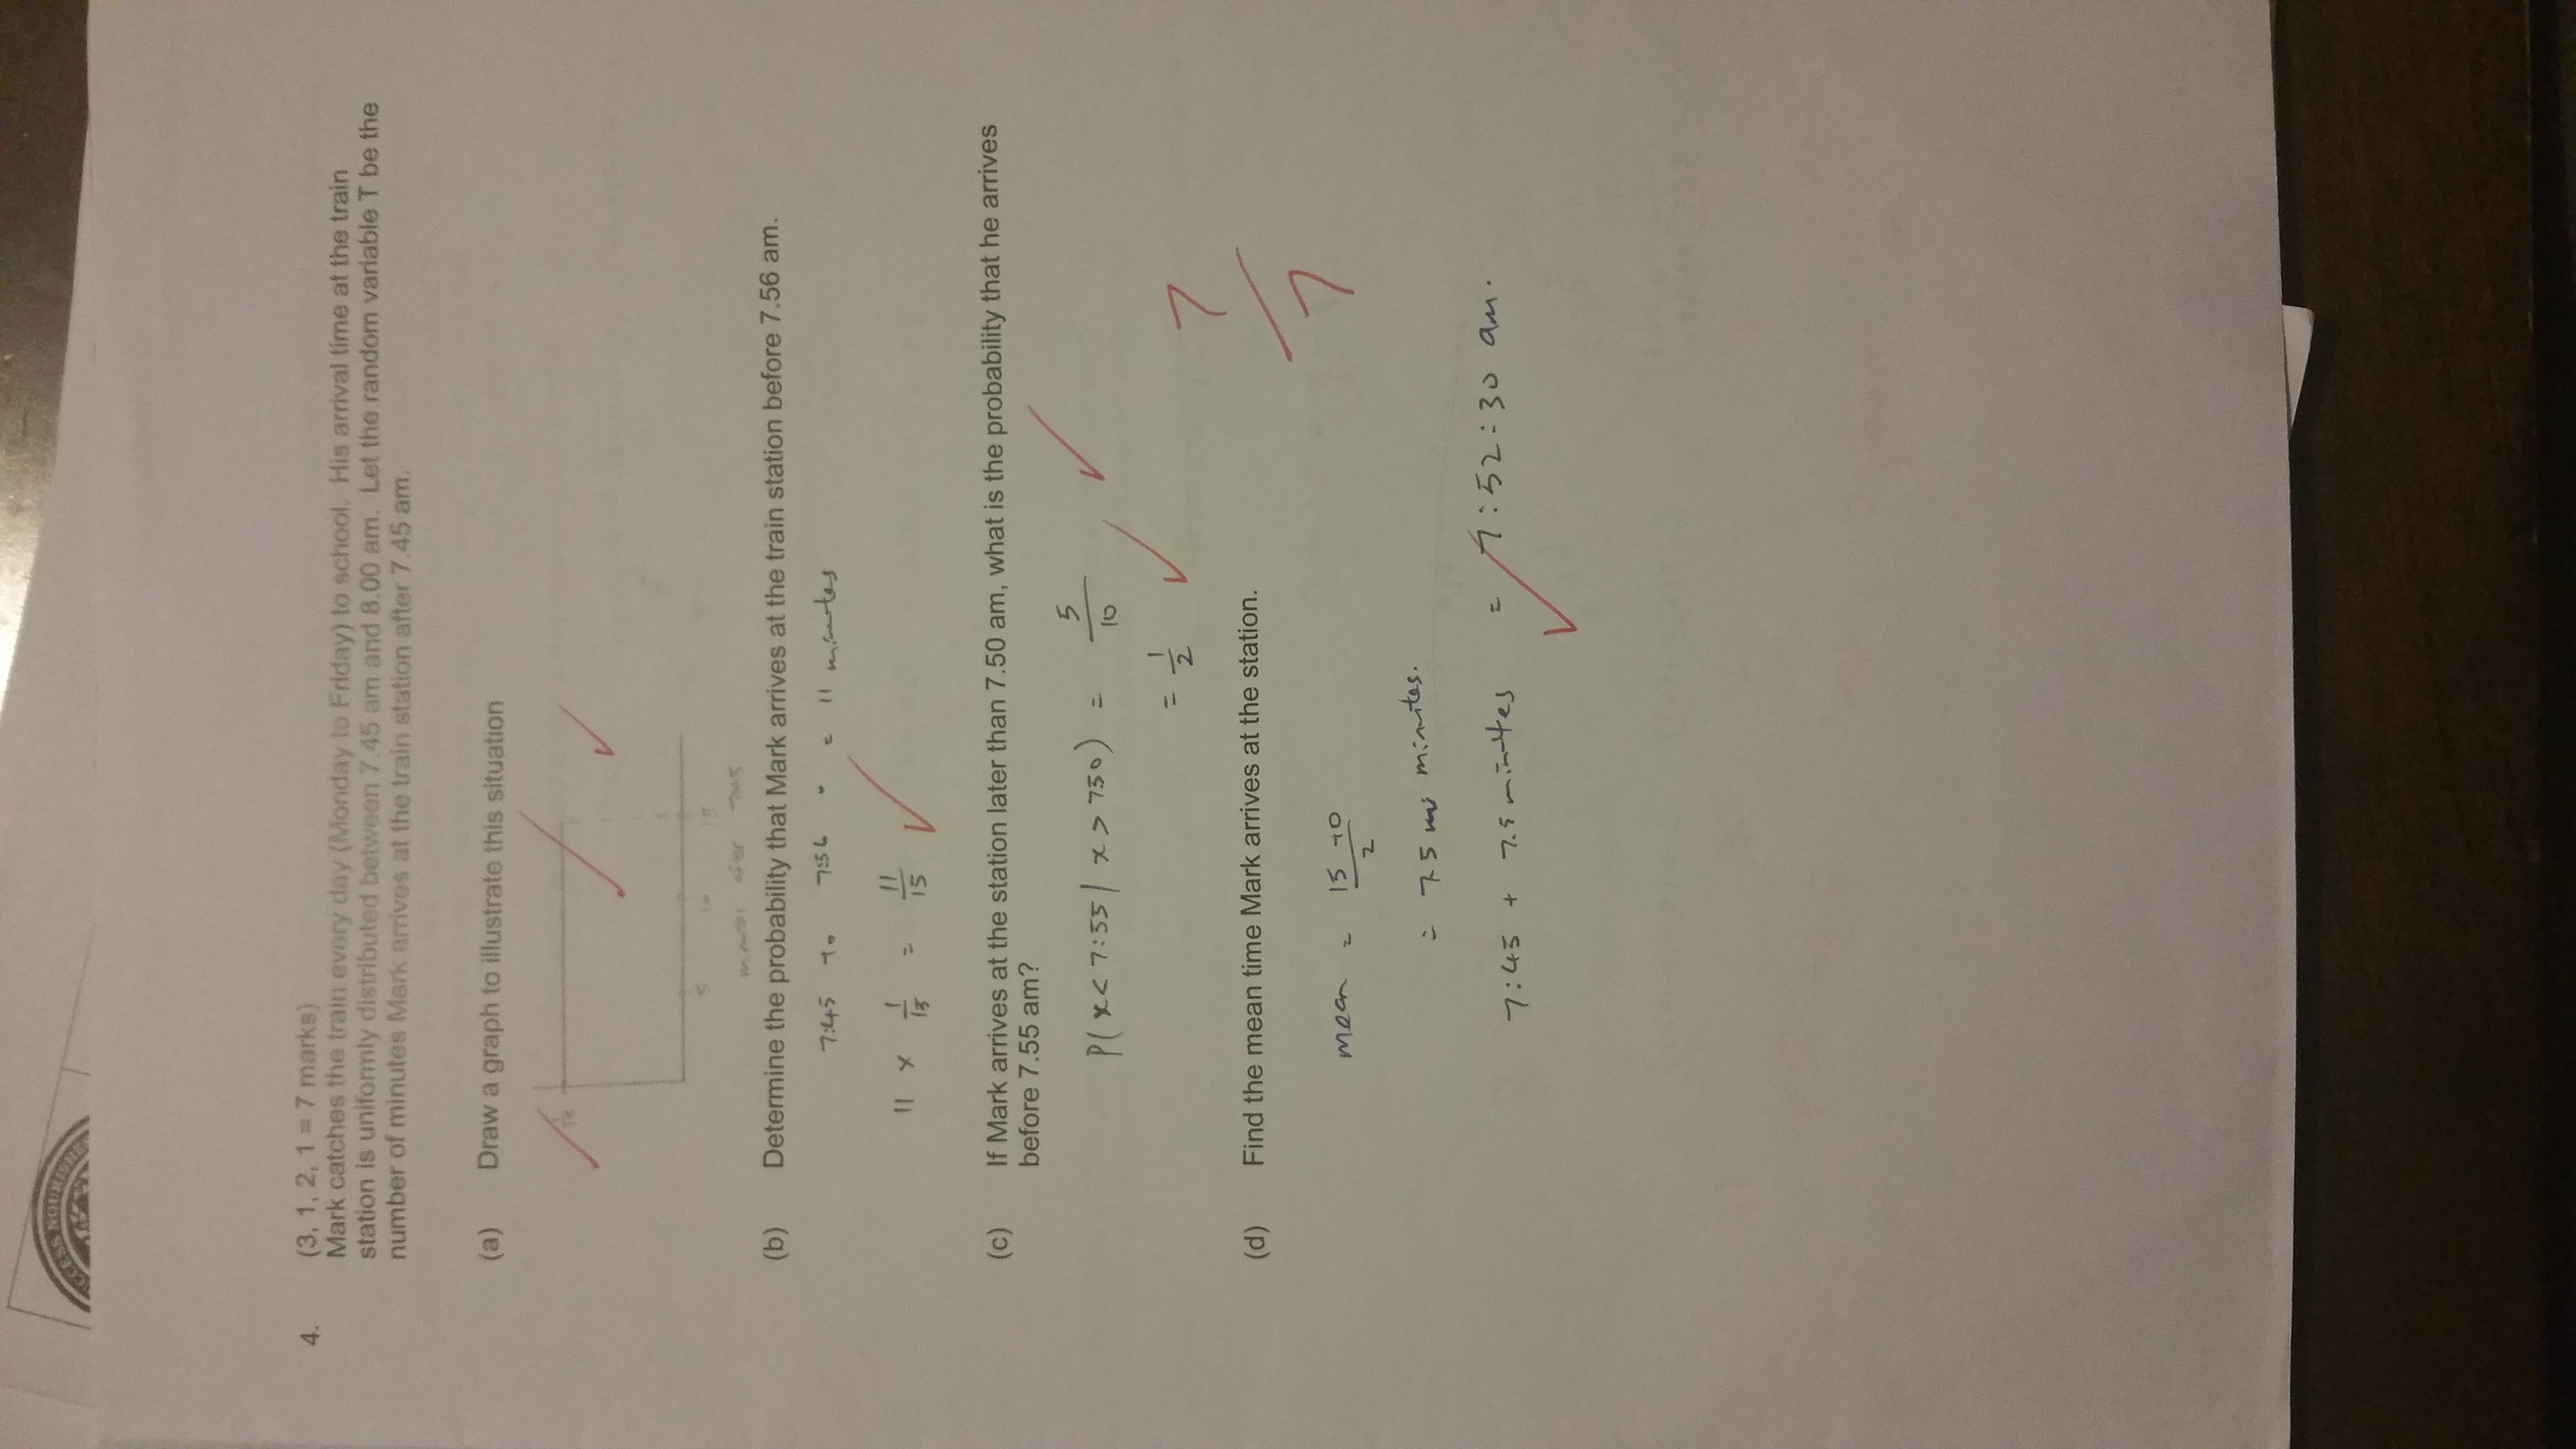 CCESS NOURISHE
4. (3, 1, 2, 1 = 7 marks)
Mark catches the train every day (Monday to Friday) to school. His arrival time at the train
station is uniformly distributed between 7.45 am and 8.00 am. Let the random variable T be the
number of minutes Mark arrives at the train station after 7.45 am.
(a) Draw a graph to illustrate this situation
1/15
5 10 15
minutes after 7:45
(b) Determine the probability that Mark arrives at the train station before 7.56 am.
7:45 to 7:56 = 11 minutes
11 × 1/15 = 11/15
(c) If Mark arrives at the station later than 7.50 am, what is the probability that he arrives
before 7.55 am?
P(x < 7:55 | x > 750) = 5/10
= 1/2
7/7
(d) Find the mean time Mark arrives at the station.
mean = 15+0/2
= 7.5 minutes.
7:45 + 7.5 minutes = 7:52:30 am.